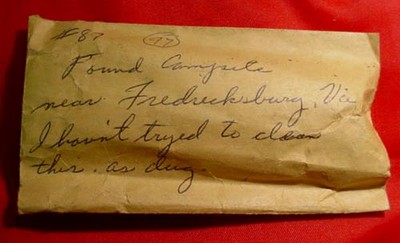 #87 97
Found Campsite
near Fredrecksburg, Va
I hav'nt tryed to clean
this. as dug.